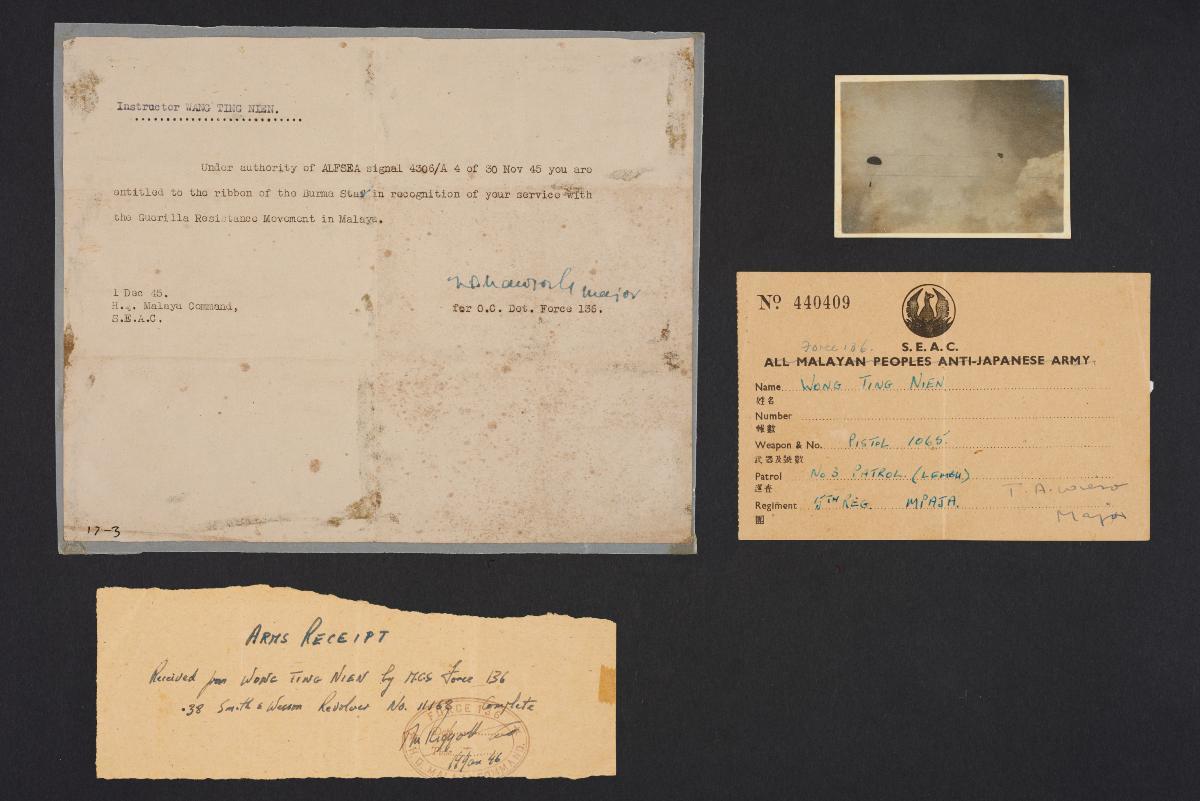 Instructor WANG TING NIEN.
Under authority of ALFSEA signal 4306/A 4 of 30 Nov 45 you are
entitled to the ribbon of the Burma Star in recognition of your service with
the Guerilla Resistance Movement in Malaya.
major
1 Dec 45.
H.Q. Malaya Command,
S.E.A.C.
for O.C. Det. Force 136.
17-3
No 440409
S.E.A.C.
Force 136.
ALL MALAYAN PEOPLES ANTI-JAPANESE ARMY
Name WONG TING NIEN
姓名
Number
Weapon & No. PISTOL 1065
Patrol No 3 PATROL (LENGGONG)
Regiment 5TH REG. MPAJA.
團
T. A. 
Major
ARMS RECEIPT
Received from WONG TING NIEN by Force 136
.38 Smith & Wesson Revolver No. Complete
FORCE 136
H.Q. MALAYA COMMAND
Jan 46